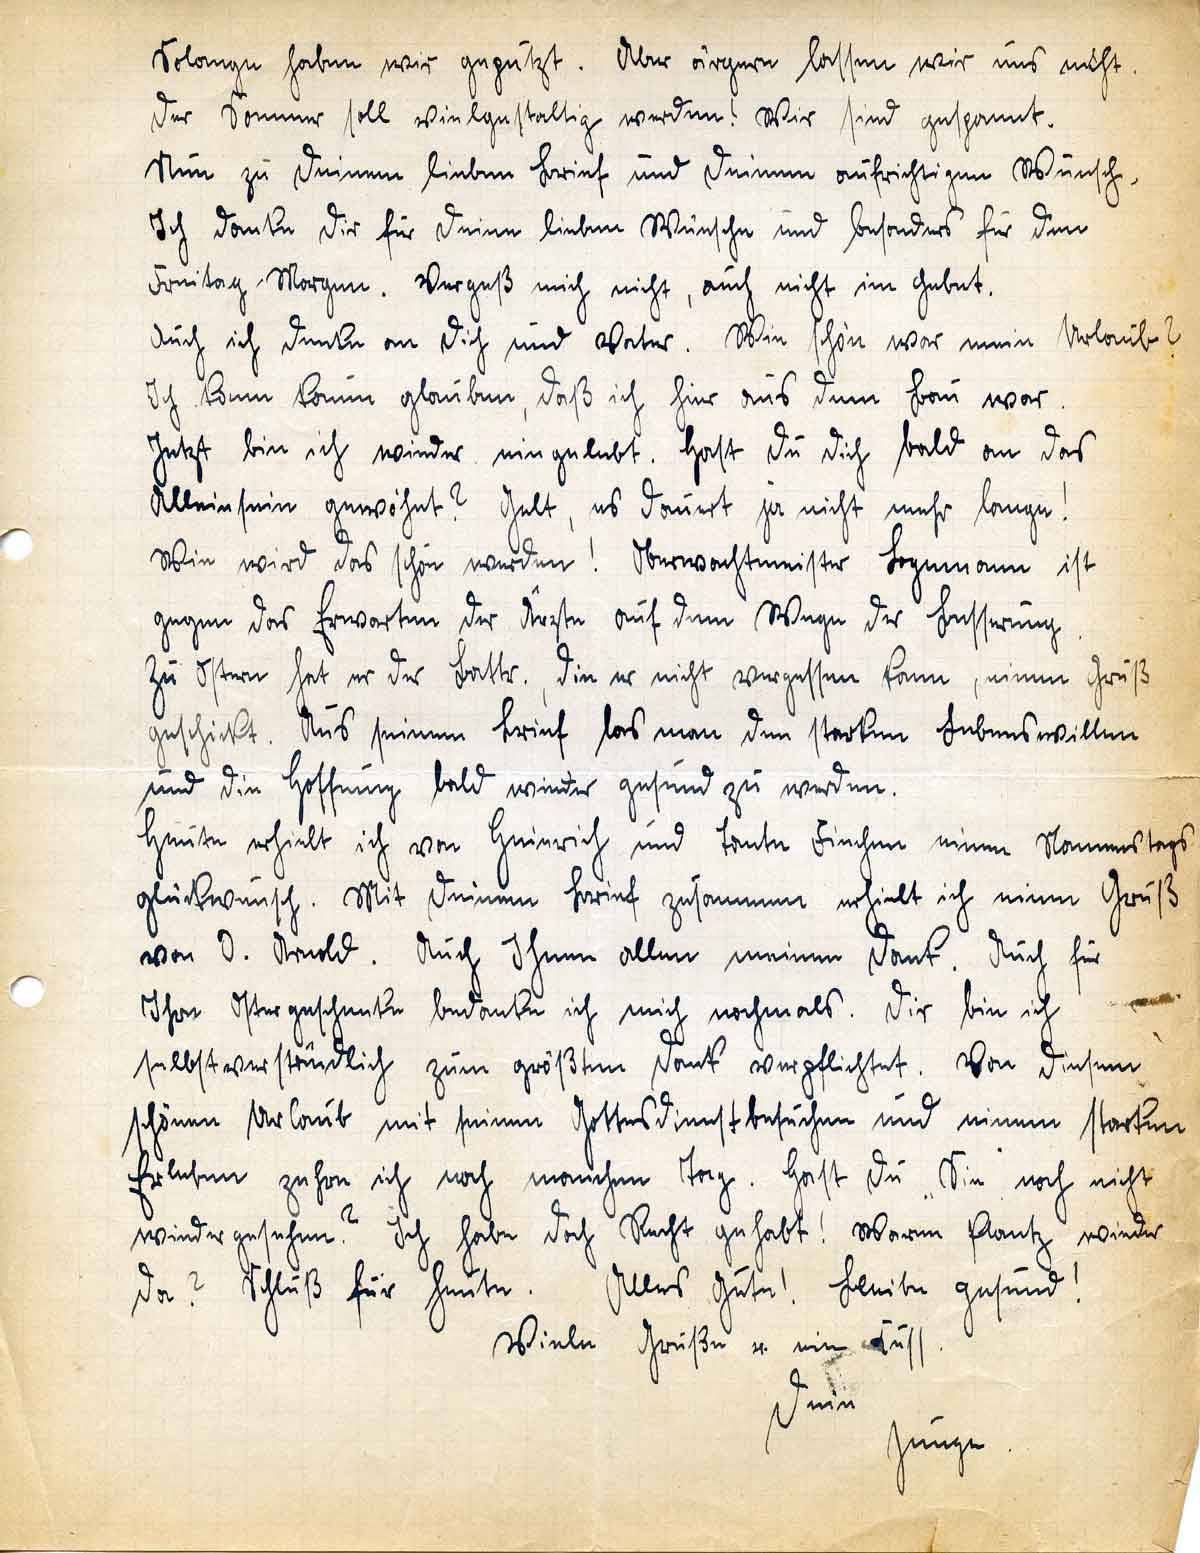 Solange haben wir geputzt. Aber ärgern lassen wir uns nicht.
Der Sommer soll vielgestaltig werden! Wir sind gespannt.
Nun zu Deinem lieben Brief und Deinem aufrichtigen Wunsch.
Ich danke Dir für Deine lieben Wünsche und besonders für den
Freitag-Morgen. Vergeß mich nicht, auch nicht im Gebet.
Auch ich denke an Dich und Vater. Wie schön war mein Urlaub?
Ich kann kaum glauben, daß ich hier aus dem Bau war.
Jetzt bin ich wieder eingelebt. Hast Du Dich bald an das
Alleinsein gewöhnt? Gelt, es dauert ja nicht mehr lange!
Wie wird das schön werden! Oberwachtmeister Begemann ist
gegen das Erwarten der Ärzte auf dem Wege der Besserung.
Zu Ostern hat er der Battr., die er nicht vergessen kann, einen Gruß
geschickt. Aus seinem Brief las man den starken Lebenswillen
und die Hoffnung bald wieder gesund zu werden.
Heute erhielt ich von Heinrich und Tante Finchen einen Namenstags
glückwunsch. Mit Deinem Brief zusammen erhielt ich einen Gruß
von O. Arnold. Auch Ihnen allen meinen Dank. Auch für
Ihre Ostergeschenke bedanke ich mich nochmals. Dir bin ich
selbstverständlich zum größten Dank verpflichtet. Von diesem
schönen Urlaub mit seinen Gottesdienstbesuchen und einem starken
Erleben zehre ich noch manchen Tag. Hast Du „Sie" noch nicht
wiedergesehen? Ich habe doch Recht gehabt! Waren wieder
da? Schluß für heute. Alles Gute! Bleibe gesund!
Viele Grüße u. ein Kuss.
Dein
Junge.